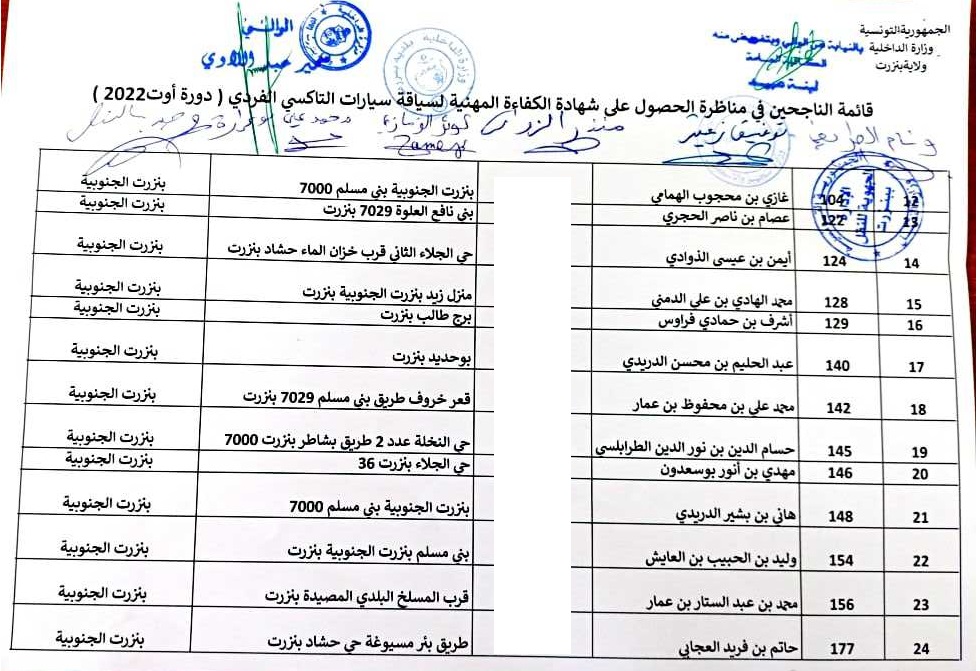 الجمهورية التونسية
وزارة الداخلية
ولاية بنزرت
بالنيابة عن الوالي وبتفويض منه
الوالي
سمير عبد اللاوي
قائمة الناجحين في مناظرة الحصول على شهادة الكفاءة المهنية لسياقة سيارات التاكسي الفردي ( دورة أوت2022 )
12 104 غازي بن محجوب الهمامي بنزرت الجنوبية بني مسلم 7000 بنزرت الجنوبية
13 122 عصام بن ناصر الحجري بني نافع العلوة 7029 بنزرت بنزرت الجنوبية
14 124 أيمن بن عيسى الذوادي حي الجلاء الثاني قرب خزان الماء حشاد بنزرت بنزرت الجنوبية
15 128 محمد الهادي بن علي الدمني منزل زيد بنزرت الجنوبية بنزرت بنزرت الجنوبية
16 129 أشرف بن حمادي فراوس برج طالب بنزرت بنزرت الجنوبية
17 140 عبد الحليم بن محسن الدريدي بوحديد بنزرت بنزرت الجنوبية
18 142 محمد علي بن محفوظ بن عمار قعر خروف طريق بني مسلم 7029 بنزرت بنزرت الجنوبية
19 145 حسام الدين بن نور الدين الطرابلسي حي النخلة عدد 2 طريق بشاطر بنزرت 7000 بنزرت الجنوبية
20 146 مهدي بن أنور بوسعدون حي الجلاء بنزرت 36 بنزرت الجنوبية
21 148 هاني بن بشير الدريدي بنزرت الجنوبية بني مسلم 7000 بنزرت الجنوبية
22 154 وليد بن الحبيب بن العايش بني مسلم بنزرت الجنوبية بنزرت بنزرت الجنوبية
23 156 محمد بن عبد الستار بن عمار قرب المسلخ البلدي المصيدة بنزرت بنزرت الجنوبية
24 177 حاتم بن فريد العجابي طريق بئر مسيوغة حي حشاد بنزرت بنزرت الجنوبية